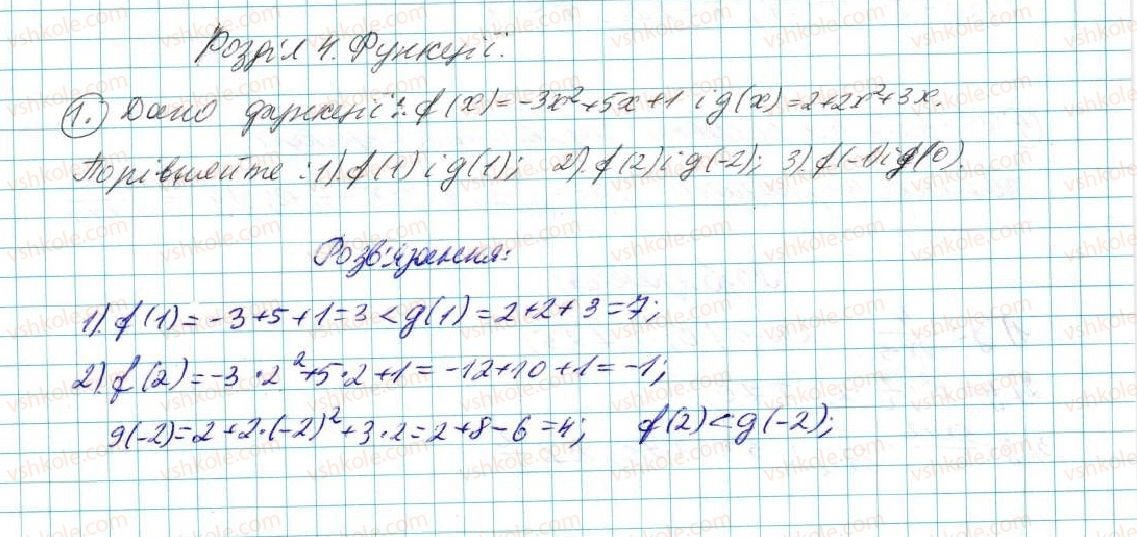 Розділ 4. Функції.
1. Дано функції: f(x)=-3x²+5x+1 і g(x)=2+2x²+3x.
Порівняйте: 1). f(1) і g(1); 2). f(2) і g(-2); 3). f(-1) і g(0).
Розв'язання:
1). f(1)=-3+5+1=3<g(1)=2+2+3=7;
2). f(2)=-3·2²+5·2+1=-12+10+1=-1;
g(-2)=2+2·(-2)²+3·2=2+8-6=4; f(2)<g(-2);